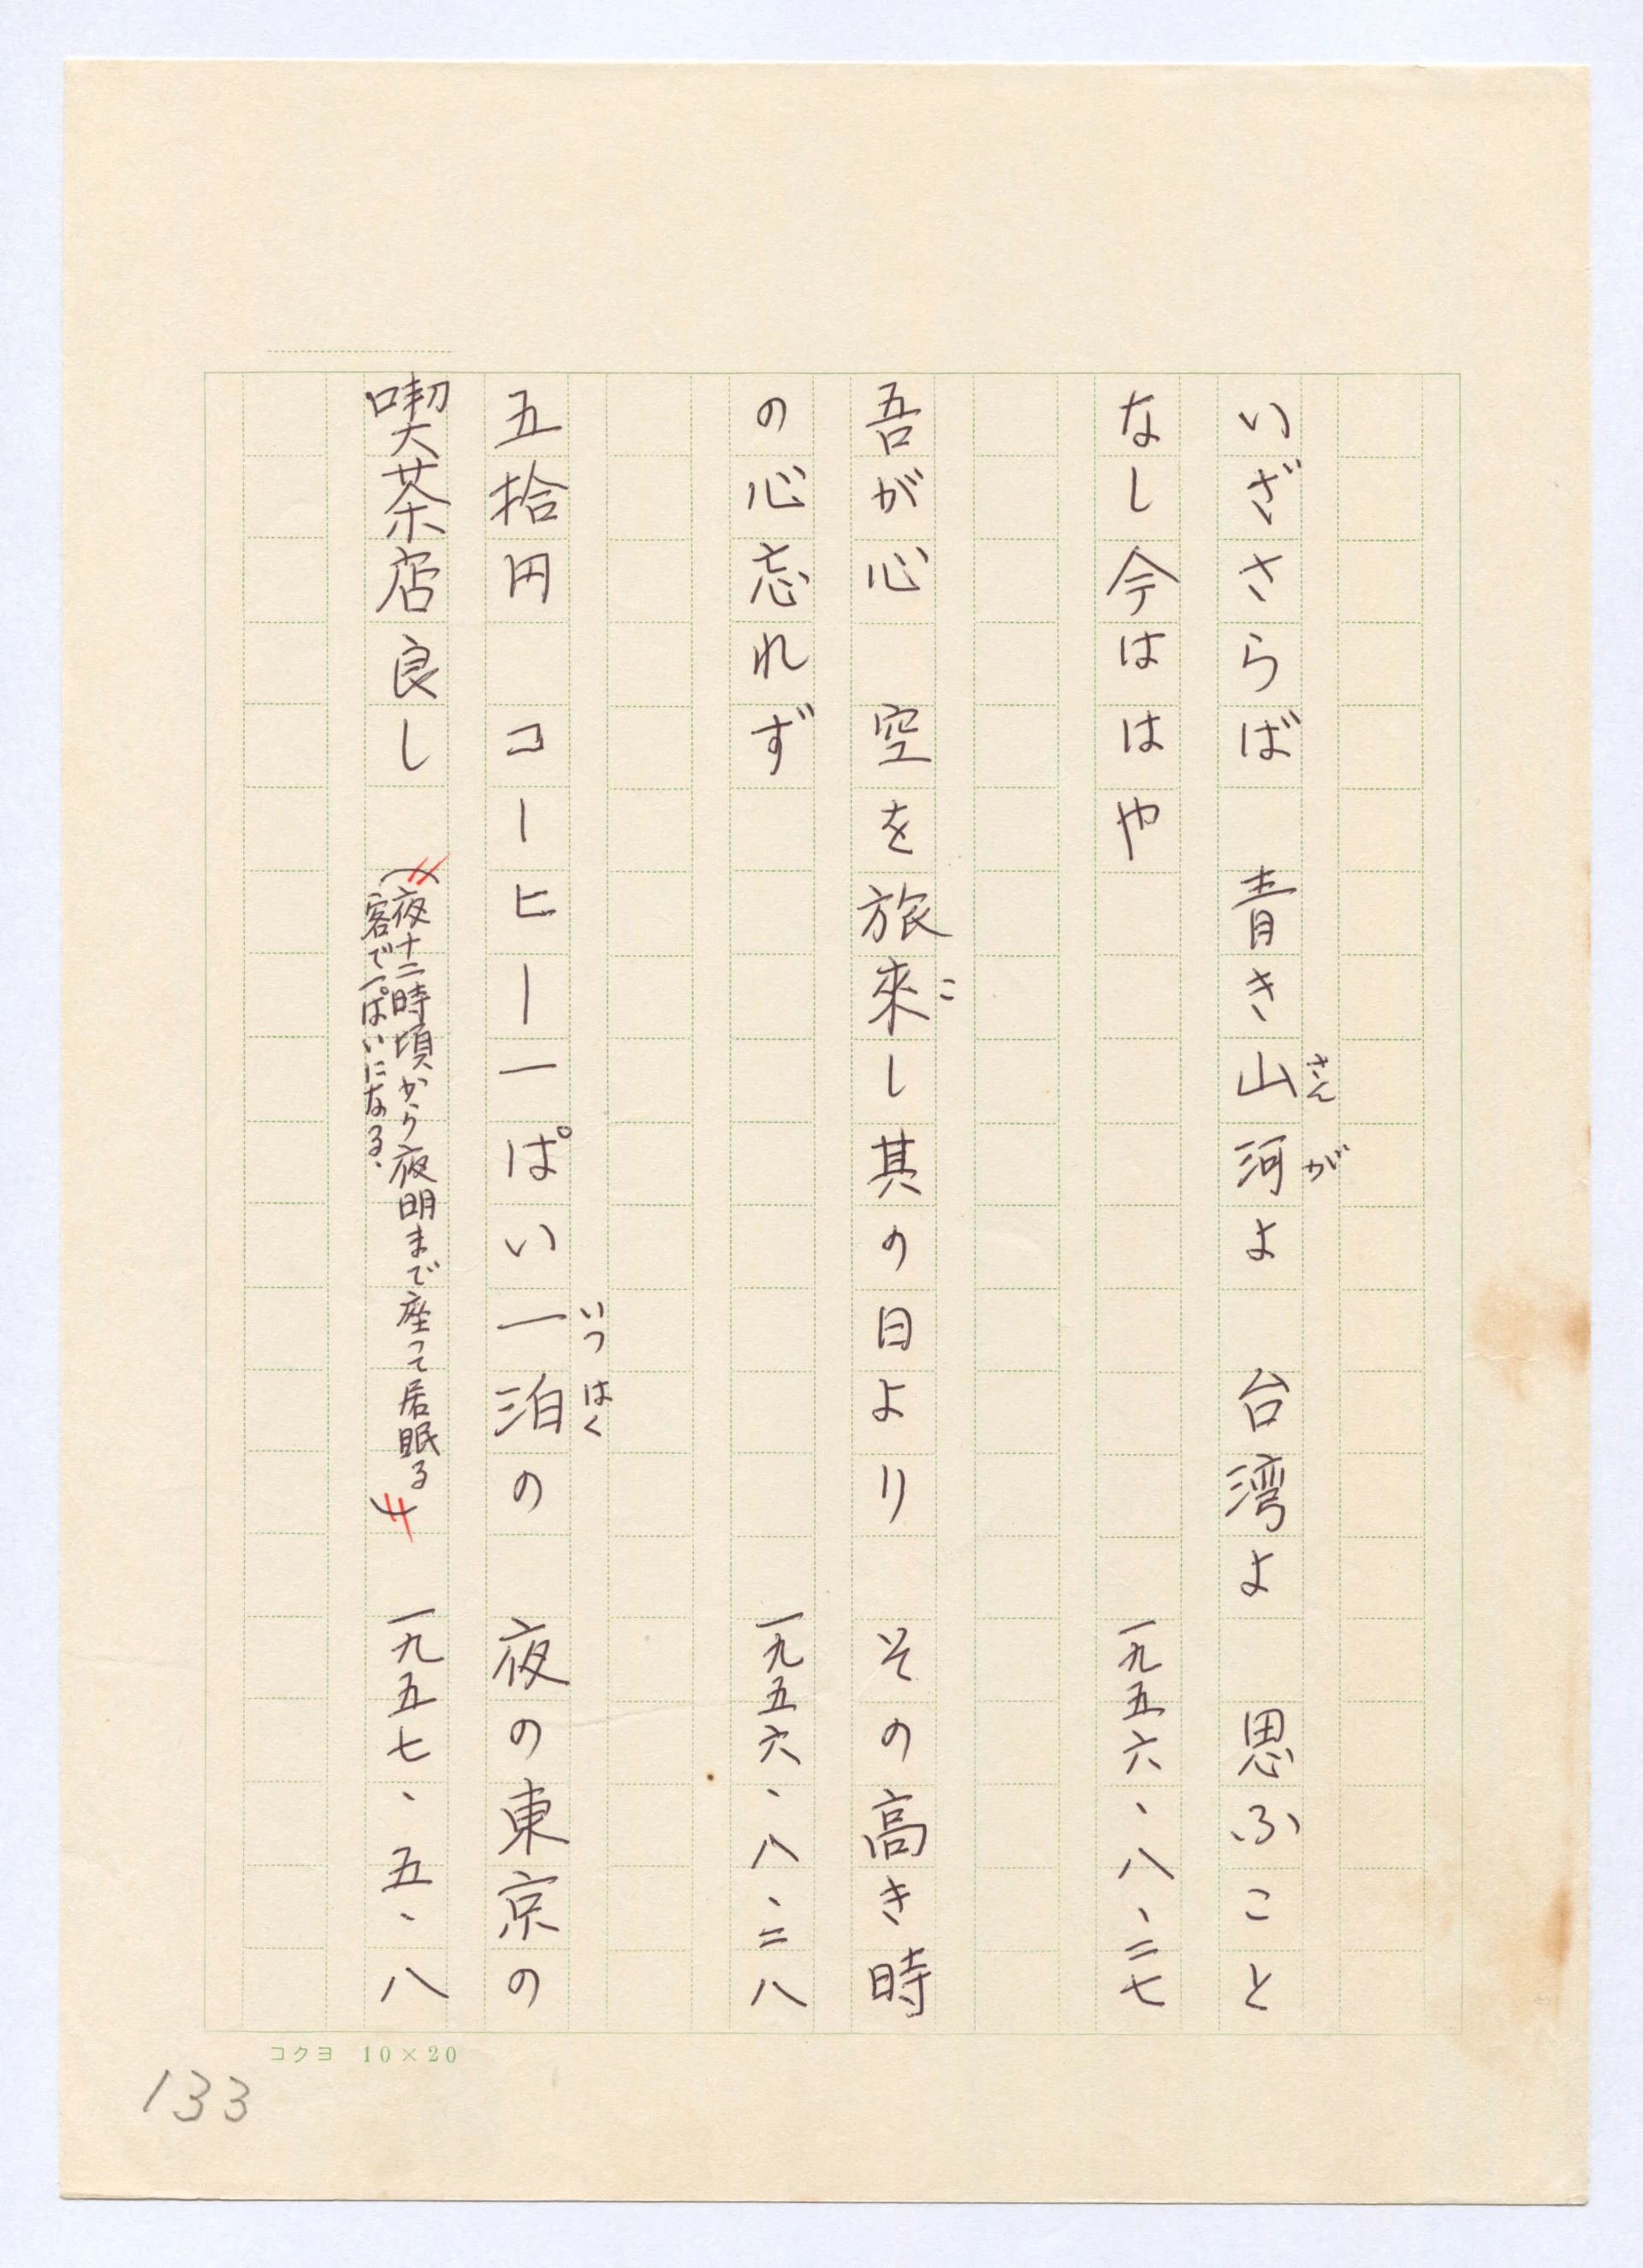 いざさらば　青き山河よ　台湾よ　思ふこと
さんが
なし今ははや　一九五六、八、二七
吾が心　空を旅來し其の日より　その高き時
こ
の心忘れず　一九五六、八、二八
五拾円　コーヒー一ぱい一泊の　夜の東京の
いつはく
喫茶店良し　（夜十二時頃から夜明まで座って居眠る
客で一ぱいになる、）　一九五七、五、八
コクヨ　10×20
133